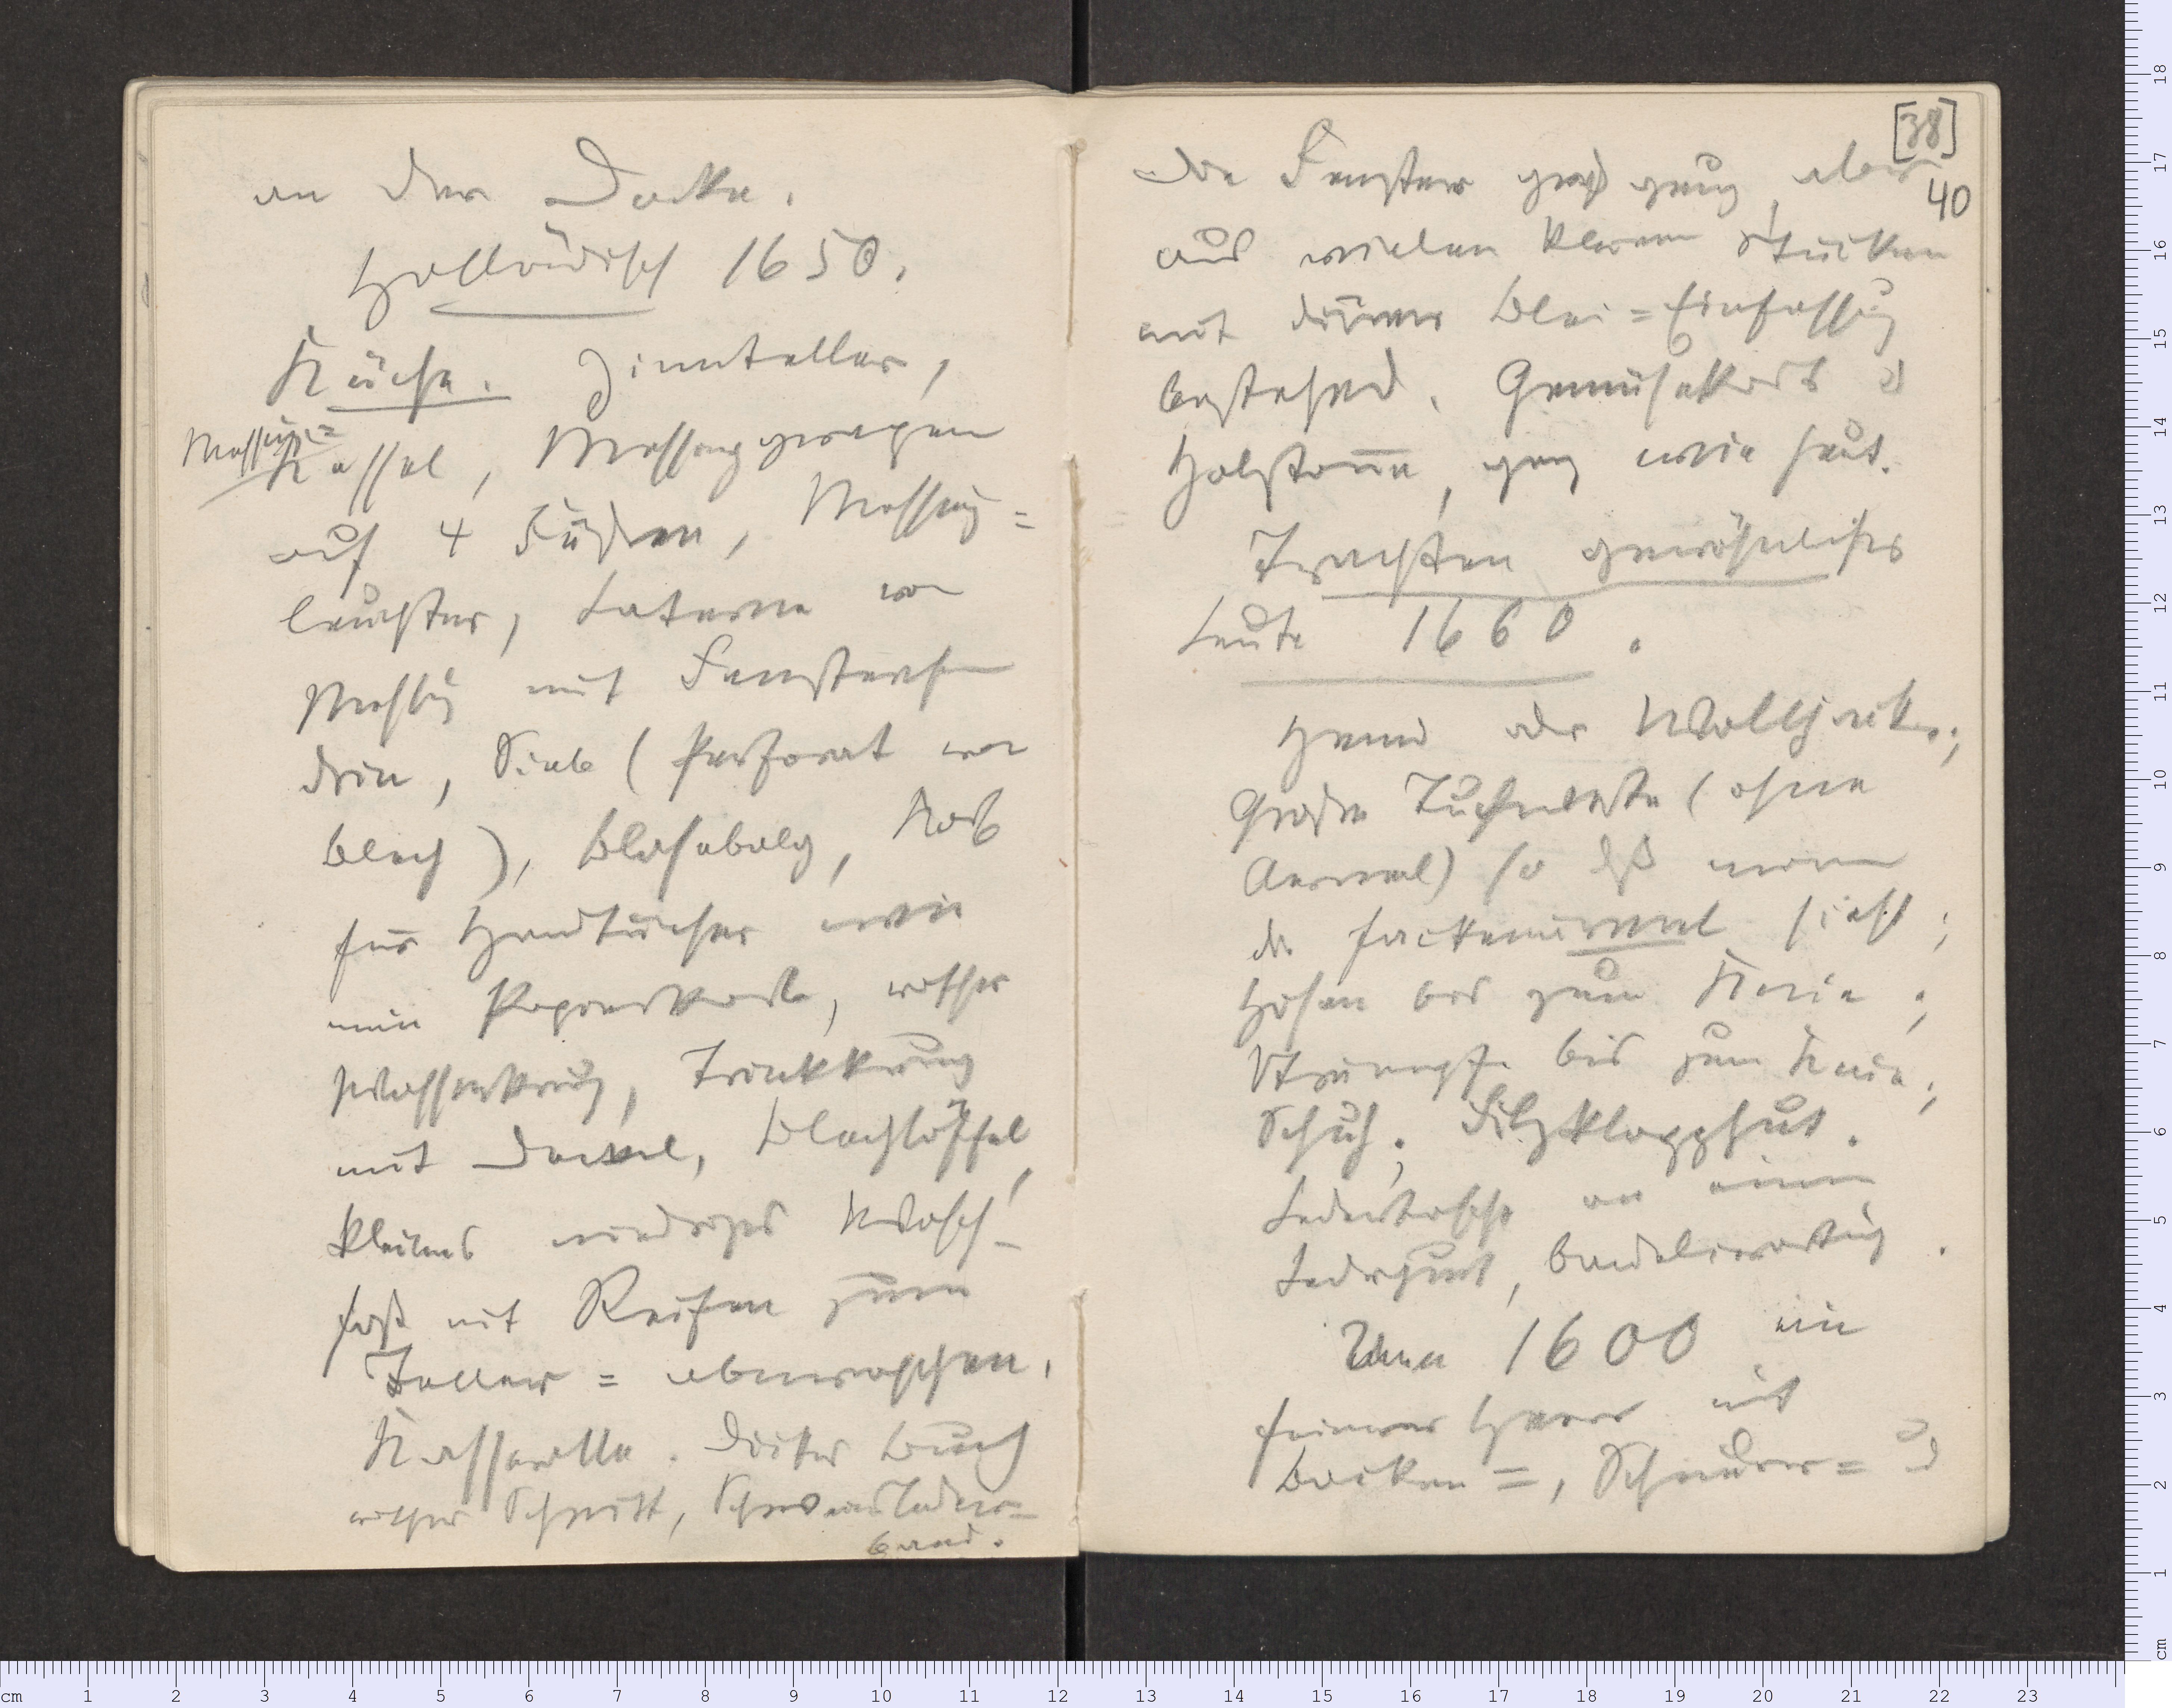 an der Decke.
Holländisch 1650.
Küche. Zinnteller,
Messing=
Kessel, Messing
auf 4 Füßen, Messing=
leuchter, Laterne von
Messing mit Fensterchen
drin, Siebe (Perforat von
blech), Blasebalg, Korb
für Handtücher wie
mein Papierkorb, rother
Wasserkrug, Trinkkrug
mit Deckel, Blechlöffel,
kleines niedriges Wasch-
faß mit Reifen zum
Teller=abwaschen.
Kasserolle. Dickes Buch
rother Schnitt, Schweinsleder=
band.
[38]
40
Die Fenster groß genug, aber
aus vielen kleinen Stücken
mit dünner Blei=Einfassung
bestehend. Gemüsekorb u
Holztonne, ganz wie heut.
Trachten gewöhnlicher
Leute 1660.
Hemd oder Wolljacke;
Große Tuchweste (ohne
Aermel) so daß man
die Jackenärmel sieht;
Hosen bis zum Knie;
Strümpfe bis zum Knie;
Schuh; Filzklapphut.
Ledertasche an einem
Ledergurt, bandelierartig.
Um 1600 ein
feinerer Herr mit
Backen=, Schnurr= u